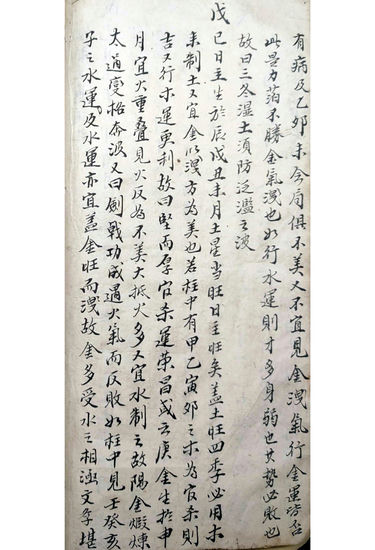 有病反乙卯未会局俱不美又不宜見金洩氣行金運皆否
此是力薄不勝金氣洩也如行水運則才多身弱也其勢必敗也
故曰三冬湿土須防泛濫之波
戊
己日主生於辰戌丑未月土星当旺日主旺矣盖土旺四季必用木
来制土又宜金以洩方為美也若柱中有甲乙寅卯之木為官杀則
吉又行木運更利故曰堅而厚官杀運荣昌或云庚金生於申
月宜火重叠見火反為不美大抵火多又宜水制之故陽金煆煉
太過变枯奔波又曰劍戟功成遇火氣而反敗如柱中見壬癸亥
子之水運及水運亦宜盖金旺而洩故金多受水之相涵文章堪